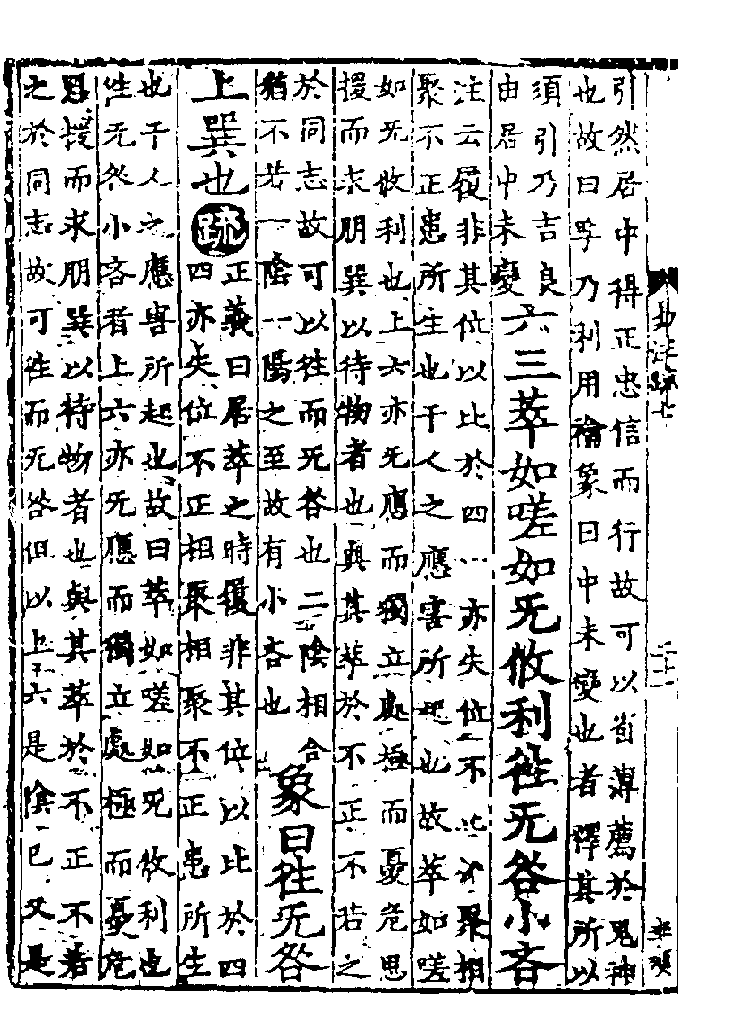 引然居中得正忠信而行故可以省薄薦於鬼神
也故曰孚乃利用禴象曰中未變也者釋其所以
須引乃吉良
由居中未變
六三萃如嗟如无攸利往无咎小吝
注云履非其位以比於四四亦失位不正相聚相
聚不正患所生也干人之應害所起也故萃如嗟
如无攸利也上六亦无應而獨立處極而憂危思
援而求朋巽以待物者也與其萃於不正不若之
於同志故可以往而无咎也二陰相合
猶不若一陰一陽之至故有小吝也
象曰往无咎
上巽也
疏
正義曰居萃之時履非其位以比於四
四亦失位不正相聚相聚不正患所生
也干人之應害所起也故曰萃如嗟如无攸利也
往无咎小吝者上六亦无應而獨立處極而憂危
思援而求朋巽以待物者也與其萃於不正不若
之於同志故可往而无咎但以上六是陰已又是